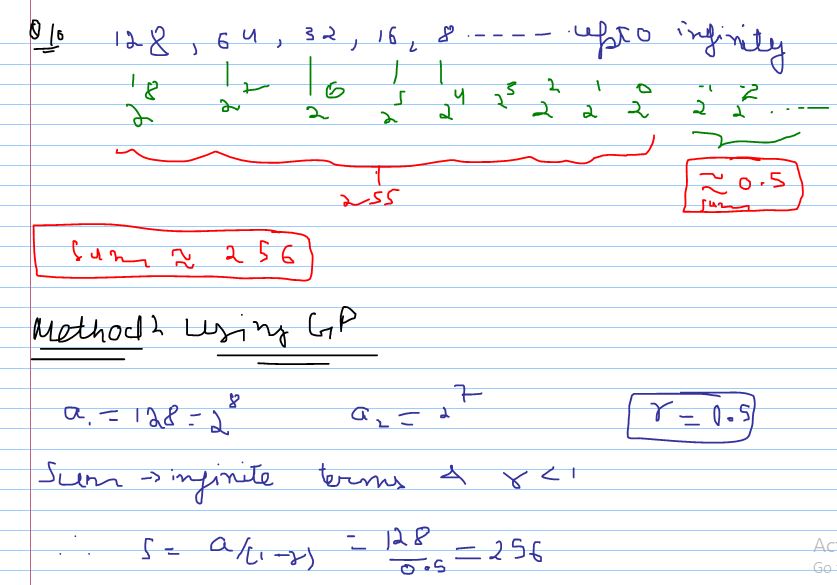 Q/o 128, 64, 32, 16, 8 ----- upto infinity
2⁸ 2⁷ 2⁶ 2⁵ 2⁴ 2³ 2² 2¹ 2⁰ 2⁻¹ 2⁻² ...---
255
≈ 0.5
sum
Sum ≈ 256
Method 2 Using GP
a₁ = 128 = 2⁸ a₂ = 2⁷ r = 0.5
Sum → infinite terms & r < 1
∴ S = a/(1-r) = 128/0.5 = 256
Ac
Go